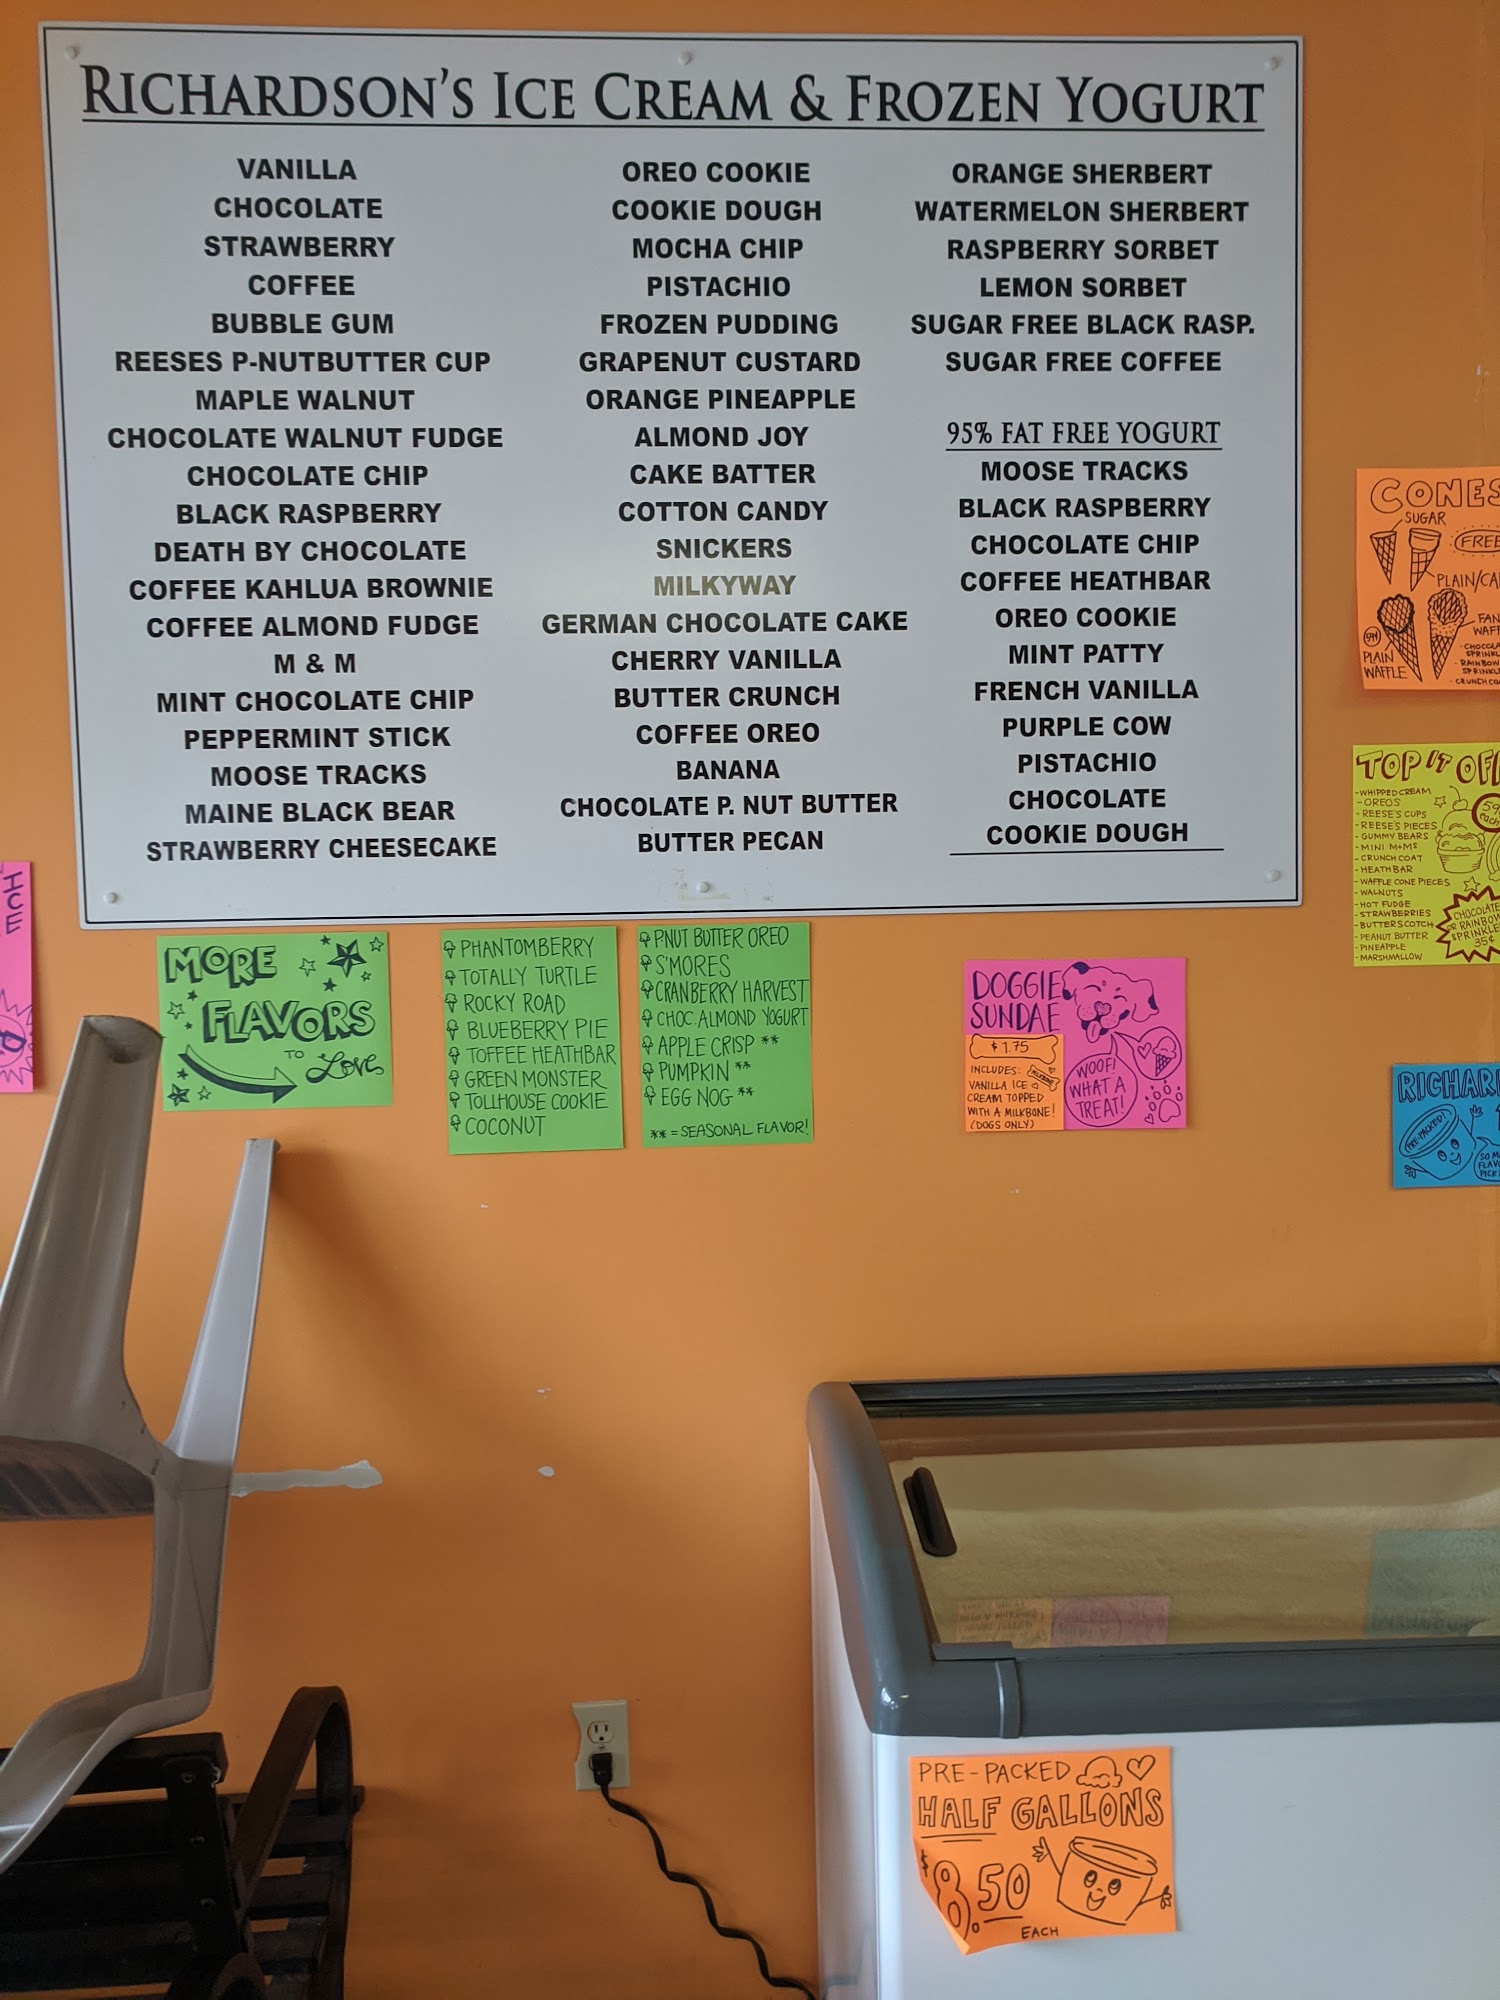 RICHARDSON'S ICE CREAM & FROZEN YOGURT
VANILLA
CHOCOLATE
STRAWBERRY
COFFEE
BUBBLE GUM
REESES P-NUTBUTTER CUP
MAPLE WALNUT
CHOCOLATE WALNUT FUDGE
CHOCOLATE CHIP
BLACK RASPBERRY
DEATH BY CHOCOLATE
COFFEE KAHLUA BROWNIE
COFFEE ALMOND FUDGE
M & M
MINT CHOCOLATE CHIP
PEPPERMINT STICK
MOOSE TRACKS
MAINE BLACK BEAR
STRAWBERRY CHEESECAKE
OREO COOKIE
COOKIE DOUGH
MOCHA CHIP
PISTACHIO
FROZEN PUDDING
GRAPENUT CUSTARD
ORANGE PINEAPPLE
ALMOND JOY
CAKE BATTER
COTTON CANDY
SNICKERS
MILKYWAY
GERMAN CHOCOLATE CAKE
CHERRY VANILLA
BUTTER CRUNCH
COFFEE OREO
BANANA
CHOCOLATE P. NUT BUTTER
BUTTER PECAN
ORANGE SHERBERT
WATERMELON SHERBERT
RASPBERRY SORBET
LEMON SORBET
SUGAR FREE BLACK RASP.
SUGAR FREE COFFEE
95% FAT FREE YOGURT
MOOSE TRACKS
BLACK RASPBERRY
CHOCOLATE CHIP
COFFEE HEATHBAR
OREO COOKIE
MINT PATTY
FRENCH VANILLA
PURPLE COW
PISTACHIO
CHOCOLATE
COOKIE DOUGH
ICE
MORE
FLAVORS
TO Love
PHANTOMBERRY
TOTALLY TURTLE
ROCKY ROAD
BLUEBERRY PIE
TOFFEE HEATHBAR
GREEN MONSTER
TOLLHOUSE COOKIE
COCONUT
PNUT BUTTER OREO
S'MORES
CRANBERRY HARVEST
CHOC. ALMOND YOGURT
APPLE CRISP **
PUMPKIN **
EGG NOG **
** = SEASONAL FLAVOR!
DOGGIE
SUNDAE
$1.75
INCLUDES:
VANILLA ICE
CREAM TOPPED
WITH A MILKBONE!
(DOGS ONLY)
WOOF!
WHAT A
TREAT!
CONES
SUGAR
FREE
PLAIN/CA
PLAIN
WAFFLE
FAN
WAFF
CHOCOLA
SPRINKL
RAINBOW
SPRINKLE
CRUNCH COA
TOP IT OF
- WHIPPED CREAM
- OREOS
- REESE'S CUPS
- REESE'S PIECES
- GUMMY BEARS
- MINI M&MS
- CRUNCH COAT
- HEATH BAR
- WAFFLE CONE PIECES
- WALNUTS
- HOT FUDGE
- STRAWBERRIES
- BUTTERSCOTCH
- PEANUT BUTTER
- PINEAPPLE
- MARSHMALLOW
59
each
CHOCOLATE
OR RAINBOW
SPRINKLE
35¢
RICHAR
PRE-PACKED!
SO M
FLAV
PICK
PRE-PACKED
HALF GALLONS
$8.50
EACH